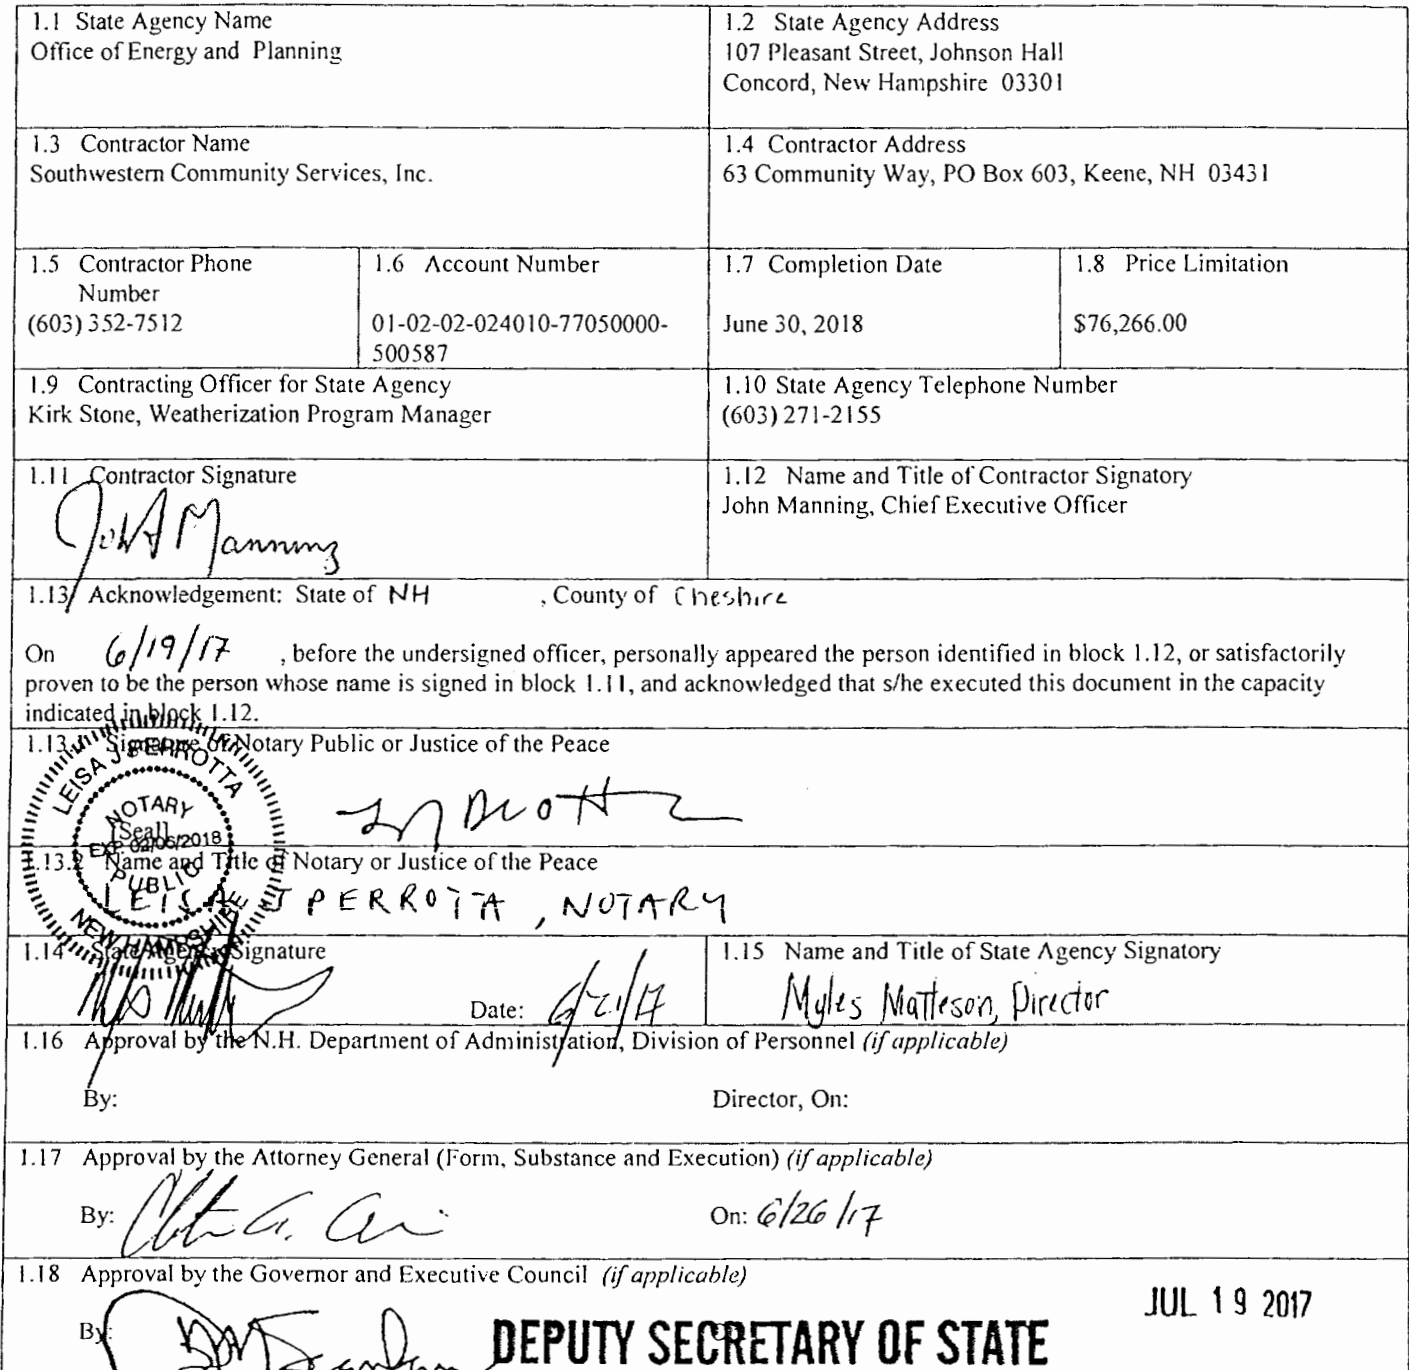 1.1 State Agency Name
Office of Energy and Planning
1.2 State Agency Address
107 Pleasant Street, Johnson Hall
Concord, New Hampshire 03301
1.3 Contractor Name
Southwestern Community Services, Inc.
1.4 Contractor Address
63 Community Way, PO Box 603, Keene, NH 03431
1.5 Contractor Phone
Number
(603) 352-7512
1.6 Account Number
01-02-02-024010-77050000-
500587
1.7 Completion Date
June 30, 2018
1.8 Price Limitation
$76,266.00
1.9 Contracting Officer for State Agency
Kirk Stone, Weatherization Program Manager
1.10 State Agency Telephone Number
(603) 271-2155
1.11 Contractor Signature
John A Manning
1.12 Name and Title of Contractor Signatory
John Manning, Chief Executive Officer
1.13 Acknowledgement: State of NH , County of Cheshire
On 6/19/17 , before the undersigned officer, personally appeared the person identified in block 1.12, or satisfactorily
proven to be the person whose name is signed in block 1.11, and acknowledged that s/he executed this document in the capacity
indicated in block 1.12.
1.13.1 Signature of Notary Public or Justice of the Peace
LEISA J PERROTTA
NOTARY
[Seal]
EXP 02/06/2018
PUBLIC
NEW HAMPSHIRE
1.13.2 Name and Title of Notary or Justice of the Peace
LEISA J PERROTTA, NOTARY
1.14 State Agency Signature
Date: 6/21/17
1.15 Name and Title of State Agency Signatory
Myles Matteson, Director
1.16 Approval by the N.H. Department of Administration, Division of Personnel (if applicable)
By: Director, On:
1.17 Approval by the Attorney General (Form, Substance and Execution) (if applicable)
By: On: 6/26/17
1.18 Approval by the Governor and Executive Council (if applicable)
JUL 19 2017
By:
DEPUTY SECRETARY OF STATE